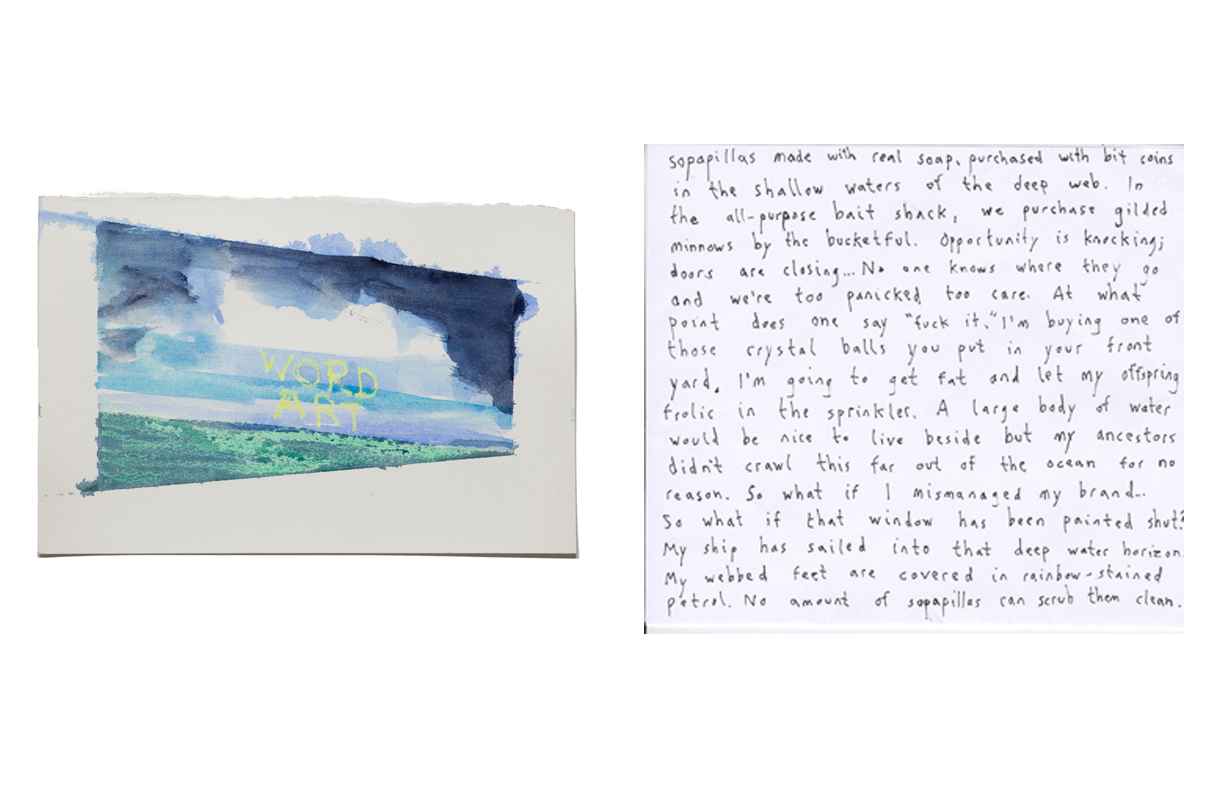 WORD
ART
sopapillas made with real soap, purchased with bit coins
in the shallow waters of the deep web. In
the all-purpose bait shack, we purchase gilded
minnows by the bucketful. Opportunity is knocking;
doors are closing... No one knows where they go
and we're too panicked too care. At what
point does one say "fuck it." I'm buying one of
those crystal balls you put in your front
yard. I'm going to get fat and let my offspring
frolic in the sprinkler. A large body of water
would be nice to live beside but my ancestors
didn't crawl this far out of the ocean for no
reason. So what if I mismanaged my brand...
So what if that window has been painted shut?
My ship has sailed into that deep water horizon.
My webbed feet are covered in rainbow-stained
petrol. No amount of sopapillas can scrub them clean.